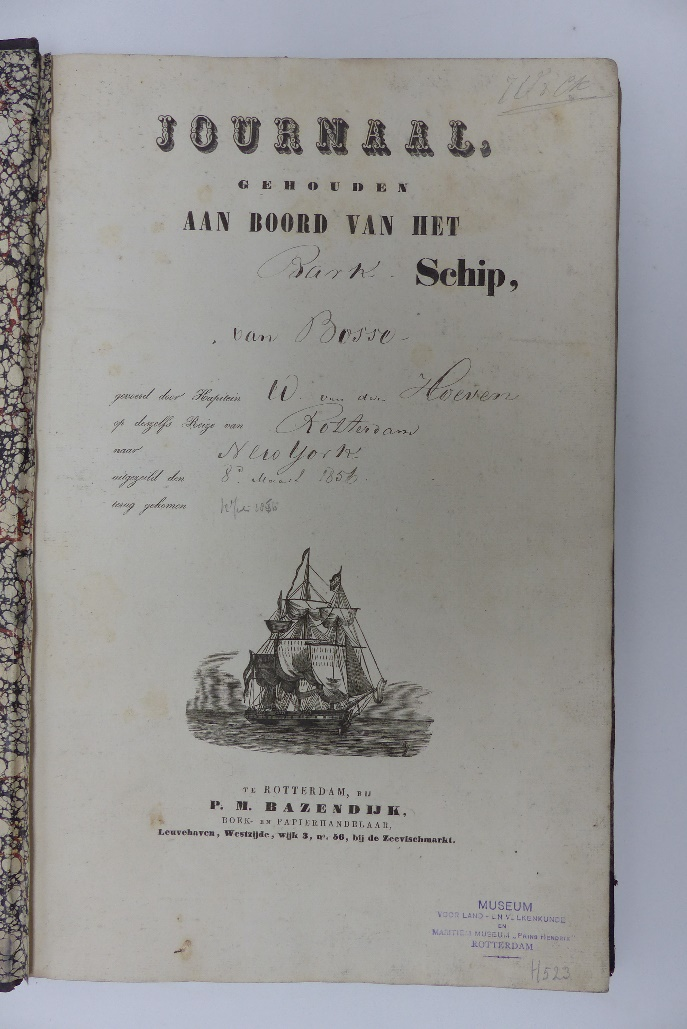 JOURNAAL,
GEHOUDEN
AAN BOORD VAN HET
Bark Schip,
van Bosse
gevoerd door Kapitein W. van der Hoeven
op deszelfs Reize van Rotterdam
naar New York
uitgezeild den 8d Maart
terug gekomen
TE ROTTERDAM, BIJ
P. M. BAZENDIJK,
BOEK- EN PAPIERHANDELAAR,
Leuvehaven, Westzijde, wijk 3, no. 56, bij de Zeevischmarkt.
MUSEUM
VOOR LAND- EN VOLKENKUNDE
EN
MARITIEM MUSEUM „PRINS HENDRIK"
ROTTERDAM
H523